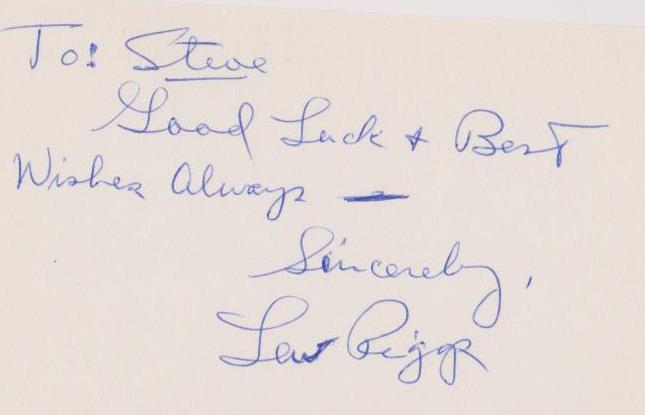 To: Steve
Good Luck + Best
Wishes Always —
Sincerely,
Lew Riggs